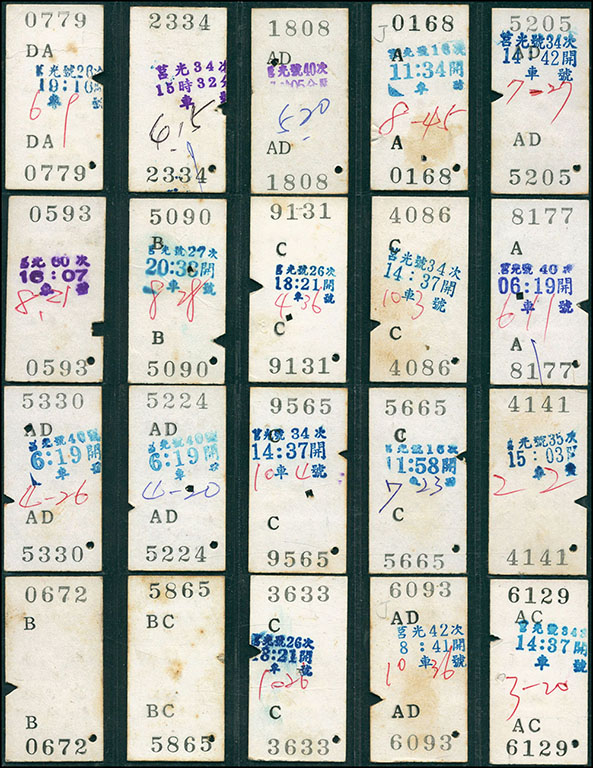 0779
DA
莒光號26次
19:10開
車 號
6 9
DA
0779
2334
莒光34次
15時32分
車 號
6 . 15
2334
1808
AD
莒光號40次
5 . 20
AD
1808
J 0168
A
莒光號18次
11:34開
車 號
8 - 45
A
0168
5205
AD
莒光號34次
14:42開
車 號
7 - 27
AD
5205
0593
莒光 60 次
16:07
車 號
8 . 21
0593
5090
B
莒光號27次
20:38開
車 號
8 28
B
5090
9131
C
莒光號26次
18:21開
車 號
4 36
C
9131
4086
C
莒光號34次
14:37開
車 號
10 3
C
4086
8177
A
莒光號 40 次
06:19開
車 號
6 11
A
8177
5330
AD
莒光號40次
6:19開
車 號
4 - 26
AD
5330
5224
AD
莒光號40次
6:19開
車 號
4 - 20
AD
5224
9565
C
莒光號 34 次
14:37開
10 車 4 號
C
9565
5665
C
莒光號16次
11:58開
車 號
7 23
C
5665
4141
莒光號35次
15:03開
車 號
2 - 2
4141
0672
B
B
0672
5865
BC
BC
5865
3633
C
莒光號26次
18:21開
車 號
1026
C
3633
J 6093
AD
莒光42次
8:41開
車 號
10 36
AD
6093
6129
AC
莒光號34次
14:37開
車 號
3 - 20
AC
6129